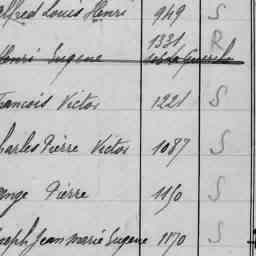 alfred Louis Henri 949 S
1331 R
Henri Eugène
François Victor 1221 S
Charles Pierre Victor 1087 S
ange Pierre 1150 S
Joseph Jean marie Eugène 1170 S